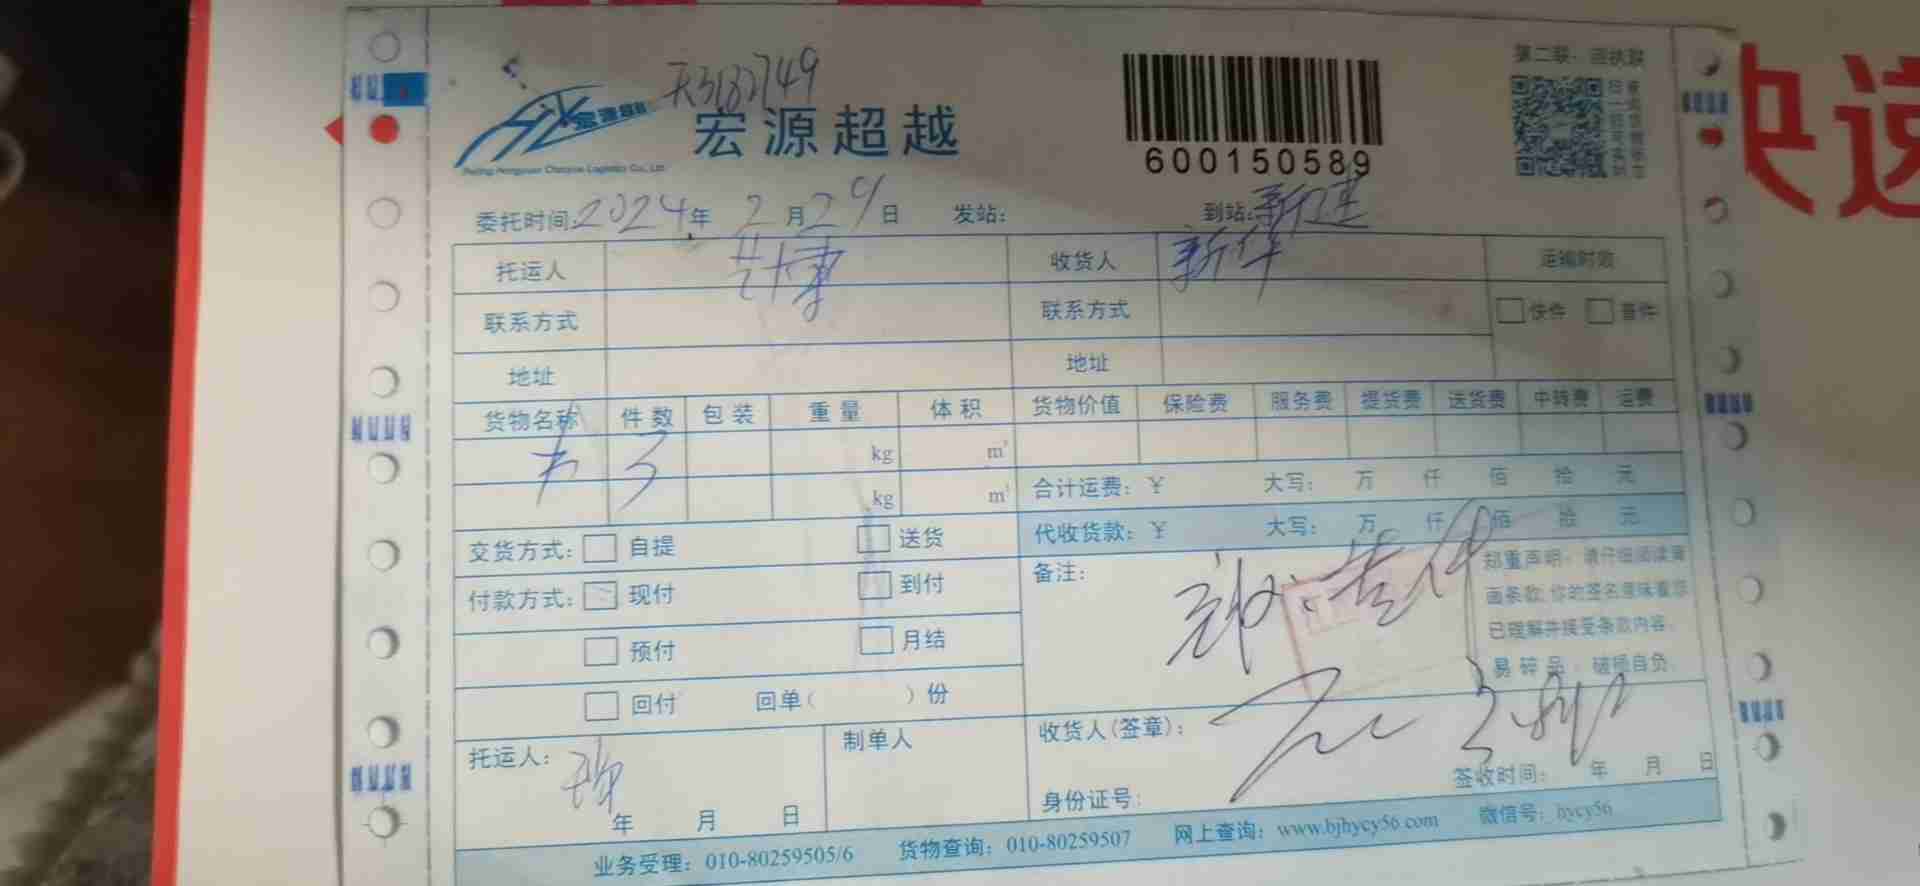 第二联：回执联
天3182749
宏源超越
Beijing Hongyuan Chaoyue Logistics Co., Ltd.
600150589
委托时间：2024年 2月29日 发站： 到站：新建
托运人 收货人 新华 运输时效
联系方式 联系方式 快件 普件
地址 地址
货物名称 件数 包装 重量 体积 货物价值 保险费 服务费 提货费 送货费 中转费 运费
3 kg m³
kg m³ 合计运费：￥ 大写： 万 仟 佰 拾 元
交货方式： 自提 送货 代收货款：￥ 大写： 万 仟 佰 拾 元
付款方式： 现付 到付 备注：
预付 月结
回付 回单( )份
郑重声明：请仔细阅读背
面条款，你的签名意味着您
已理解并接受条款内容。
易碎品，破损自负。
托运人： 制单人 收货人(签章)：
年 月 日 身份证号： 签收时间： 年 月 日
业务受理：010-80259505/6 货物查询：010-80259507 网上查询：www.bjhycy56.com 微信号：hycy56
快速